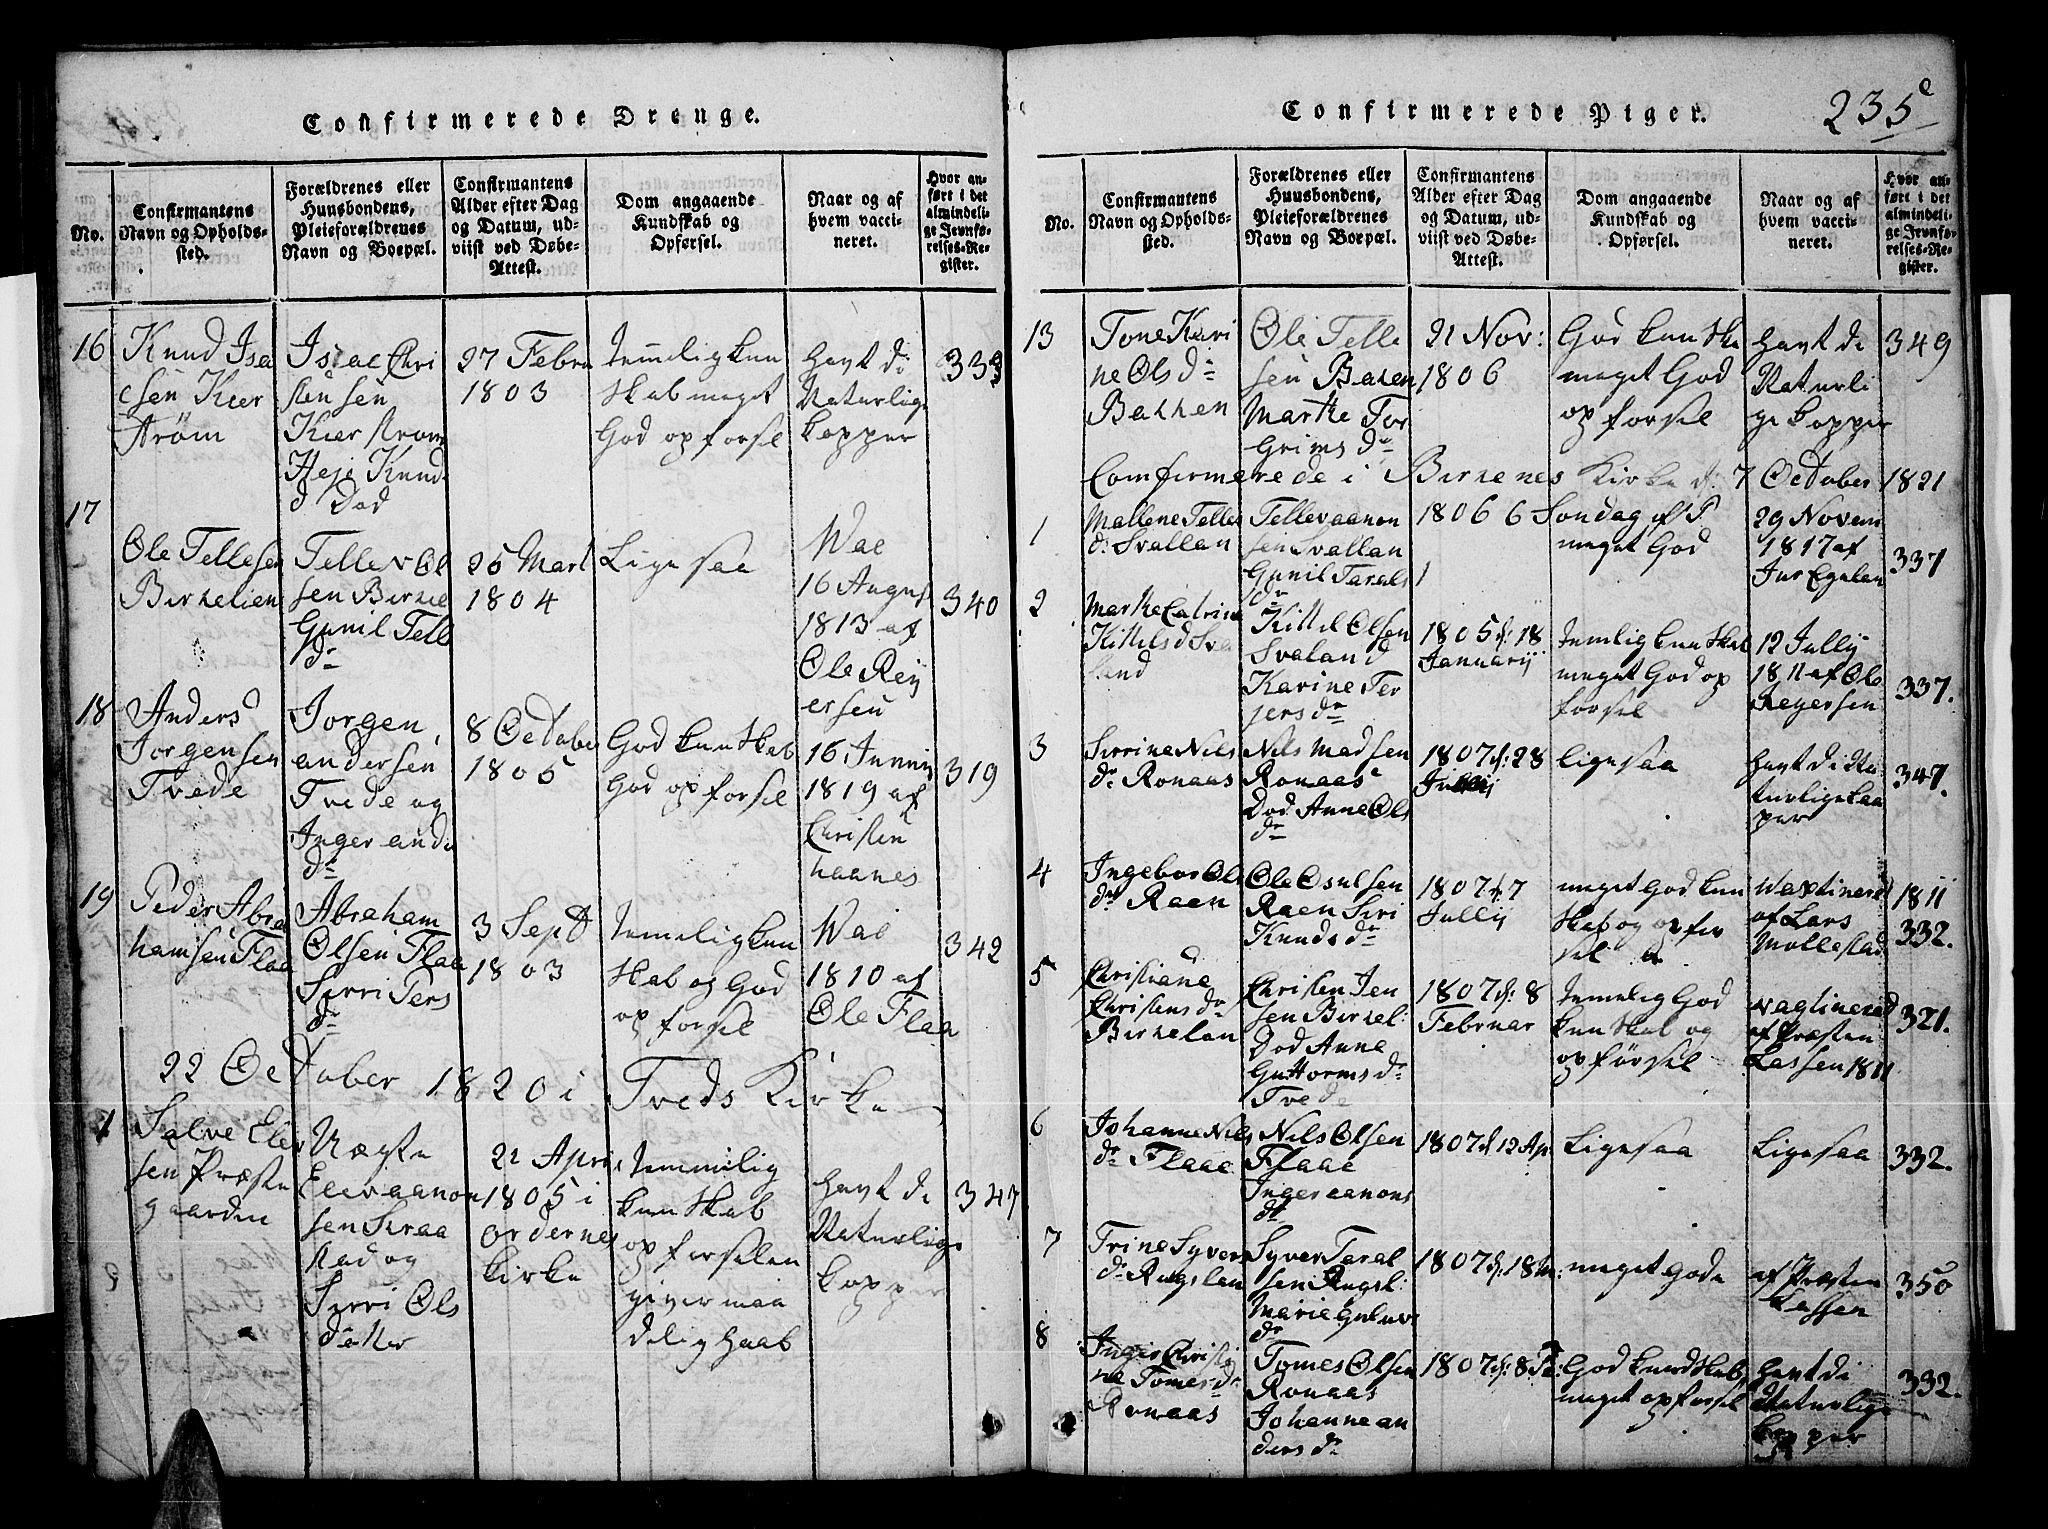 Confirmerede Drenge.
No.
Confirmantens
Navn og Opholds-
sted.
Forældrenes eller
Huusbondens,
Pleieforældrenes
Navn og Boepæl.
Confirmantens
Alder efter Dag
og Datum, ud-
viist ved Døbe-
Attest.
Dom angaaende
Kundskab og
Opførsel.
Naar og af
hvem vacci-
neret.
Hvor an-
ført i det
almindeli-
ge Jevnfø-
relses-Re-
gister.
16
Knud Isa
csen Kier
strøm
Isaac Chri
stensen
Kierstrøm
Heje Knud
d Død
27 Febru
1803
temelig kun
skab meget
God opforsel
havt di
Naturlige
kopper
333
17
Ole Tellefsen
Birkelien
Tellev Ol
sen Birke
Gunil Tell
dr
25 Mart
1804
Ligesaa
Wac
16 August
1813 af
Ole Reij
ersen
340
18
Anders
Jorgensen
Tvede
Jorgen
andersen
Tvede og
Inger anders
dr
8 October
1805
God kunskab
God opforsel
16 Junnij
1819 af
Christen
haanes
319
19
Peder Abra
hamsen Flaa
Abraham
Olsen Flaa
Sirri Pers
dr
3 Sept
1803
temelig kun
skab og God
opforsel
Wac
1810 af
Ole Flaa
342
22 October 1820 i Tveds Kirke
1
Salve Elev
sen Præste
gaarden
Næste
Elev aanon
sen Siraa
stad og
Sirri Ols
datter
22 April
1805 i
ordernes
kirke
temmelig
kunskab
opforselen
giver maa
delig haab
havt di
Naturlige
kopper
347
Confirmerede Piger.
235 e
No.
Confirmantens
Navn og Opholds-
sted.
Forældrenes eller
Huusbondens,
Pleieforældrenes
Navn og Boepæl.
Confirmantens
Alder efter Dag
og Datum, ud-
viist ved Døbe-
Attest.
Dom angaaende
Kundskab og
Opførsel.
Naar og af
hvem vacci-
neret.
Hvor an-
ført i det
almindeli-
ge Jevnfø-
relses-Re-
gister.
13
Tone Kari
ne Ols dr
Bakken
Ole Telle
sen Baken
Marthe Tor
Grims dr
21 Nov:
1806
God kunska
meget God
opforsel
havt di
Naturli
ge kopper
349
Comfirmerede i Birkenes Kirke d: 7 October 1821
1
Mallene Telles
dr Svallan
Tellev aanon
sen Svallan
Gunil Tarals
dr
1806 6 Sondag af T
meget God
29 Novem
1817 af
Jur Egelan
337
2
Marthe Catrine
Kittels d Sva
land
Kittel Olsen
Svaland
Karine Ter
jers dr
1805 d: 18
Januarij
temlig kunskab
meget God op
forsel
12 Jullij
1811 af Ole
Regersen
337.
3
Sirrine Nils
dr Ronaas
Nils Madsen
Ronaas
Dod Anne Ols
dr
1807 d: 28
Julij
ligesaa
havt di Na
turlige kaa
per
347.
4
Ingebor Ols
dr Raen
Ole Osulsen
Raen Siri
Knuds dr
1807 d 7
Jullij
meget God kun
skab og opfor
sel
Waxtinerd 1811
af Lars
Mollestad
332.
5
Christiane
Christens dr
Birkelan
Christen Jen
sen Birkel:
Dod Anne
Guttorms dr
Tvede
1807 d: 8
Februar
temelig God
kunskab og
opførsel
vagtinered
af Præsten
Lassen 1811
321.
6
Johanne Nils
dr Flaae
Nils Olsen
Flaae
Inger aanons
dr
1807 d 12 Ap
Ligesaa
Ligesaa
332.
7
Trine Syvers
dr Rugslan
Syver Taral
sen Rugsl:
Marie Gulevs
dr
1807 d: 18 M:
meget Gode
af Præsten
Lassen
350
8
Inger Christi
ne Tomes dr
Ronaas
Tomes Olsen
Ronaas
Johanne an
ders dr
1807 d: 8
God kundskab
meget opforsel
havt di
Naturlige
kopper
332.